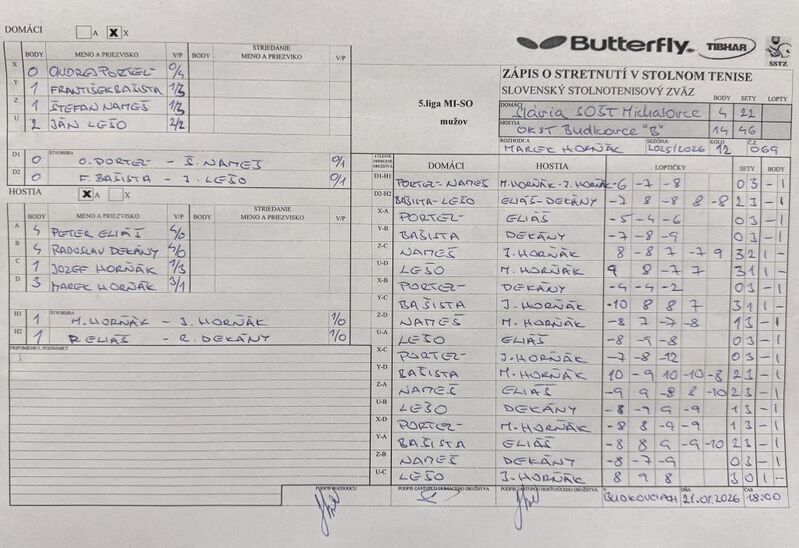 DOMÁCI A X X
BODY MENO A PRIEZVISKO V/P BODY STRIEDANIE MENO A PRIEZVISKO V/P
X 0 ONDREJ PORTEL 0/4
Y 1 FRANTIŠEK BAŠISTA 1/3
Z 1 ŠTEFAN NAMEŠ 1/3
U 2 JÁN LEŠO 2/2
D1 0 ŠTVORHRA O. PORTEL - Š. NAMEŠ 0/1
D2 0 F. BAŠISTA - J. LEŠO 0/1
HOSTIA X X
BODY MENO A PRIEZVISKO V/P BODY STRIEDANIE MENO A PRIEZVISKO V/P
A 4 PETER ELIÁŠ 4/0
B 4 RADOSLAV DEKÁNY 4/0
C 1 JOZEF HORŇÁK 1/3
D 3 MAREK HORŇÁK 3/1
H1 1 ŠTVORHRA M. HORŇÁK - J. HORŇÁK 1/0
H2 1 P. ELIÁŠ - R. DEKÁNY 1/0
PRIPOMIENKY, POZNÁMKY
PODPIS ROZHODCU
Butterfly TIBHAR SSTZ
5.liga MI-SO
mužov
ZÁPIS O STRETNUTÍ V STOLNOM TENISE
SLOVENSKÝ STOLNOTENISOVÝ ZVÄZ
DOMÁCI BODY SETY LOPTY
Slávia SOŠT Michalovce 4 22
HOSTIA
OKST Budkovce "B" 14 46
ROZHODCA SEZÓNA KOLO Č.Z.
MAREK HORŇÁK 2025/2026 12 069
DOMÁCI HOSTIA LOPTIČKY SETY BODY
D1-H1 PORTEL-NAMEŠ M.HORŇÁK-J.HORŇÁK -6 -7 -8 0 3 - 1
D2-H2 BAŠISTA-LEŠO ELIÁŠ-DEKÁNY -7 8 -8 8 -8 2 3 - 1
X-A PORTEL ELIÁŠ -5 -4 -6 0 3 - 1
Y-B BAŠISTA DEKÁNY -7 -8 -9 0 3 - 1
Z-C NAMEŠ J.HORŇÁK 8 -8 7 -7 9 3 2 1 -
U-D LEŠO M.HORŇÁK 9 8 -7 7 3 1 1 -
X-B PORTEL DEKÁNY -4 -4 -2 0 3 - 1
Y-C BAŠISTA J.HORŇÁK -10 8 8 7 3 1 1 -
Z-D NAMEŠ M.HORŇÁK -8 7 -7 -8 1 3 - 1
U-A LEŠO ELIÁŠ -8 -9 -8 0 3 - 1
X-C PORTEL J.HORŇÁK -7 -8 -12 0 3 - 1
Y-D BAŠISTA M.HORŇÁK 10 -9 10 -10 -8 2 3 - 1
Z-A NAMEŠ ELIÁŠ -9 9 -8 8 -10 2 3 - 1
U-B LEŠO DEKÁNY -8 -9 9 -9 1 3 - 1
X-D PORTEL M.HORŇÁK -8 8 -9 -9 1 3 - 1
Y-A BAŠISTA ELIÁŠ -8 8 9 -9 -10 2 3 - 1
Z-B NAMEŠ DEKÁNY -8 -7 -9 0 3 - 1
U-C LEŠO J.HORŇÁK 8 9 8 3 0 1 -
PODPIS ZÁSTUPCU DOMÁCEHO DRUŽSTVA PODPIS ZÁSTUPCU HOSŤUJÚCEHO DRUŽSTVA V BUDKOVCIACH DŇA 21.01.2026 ČAS 18:00